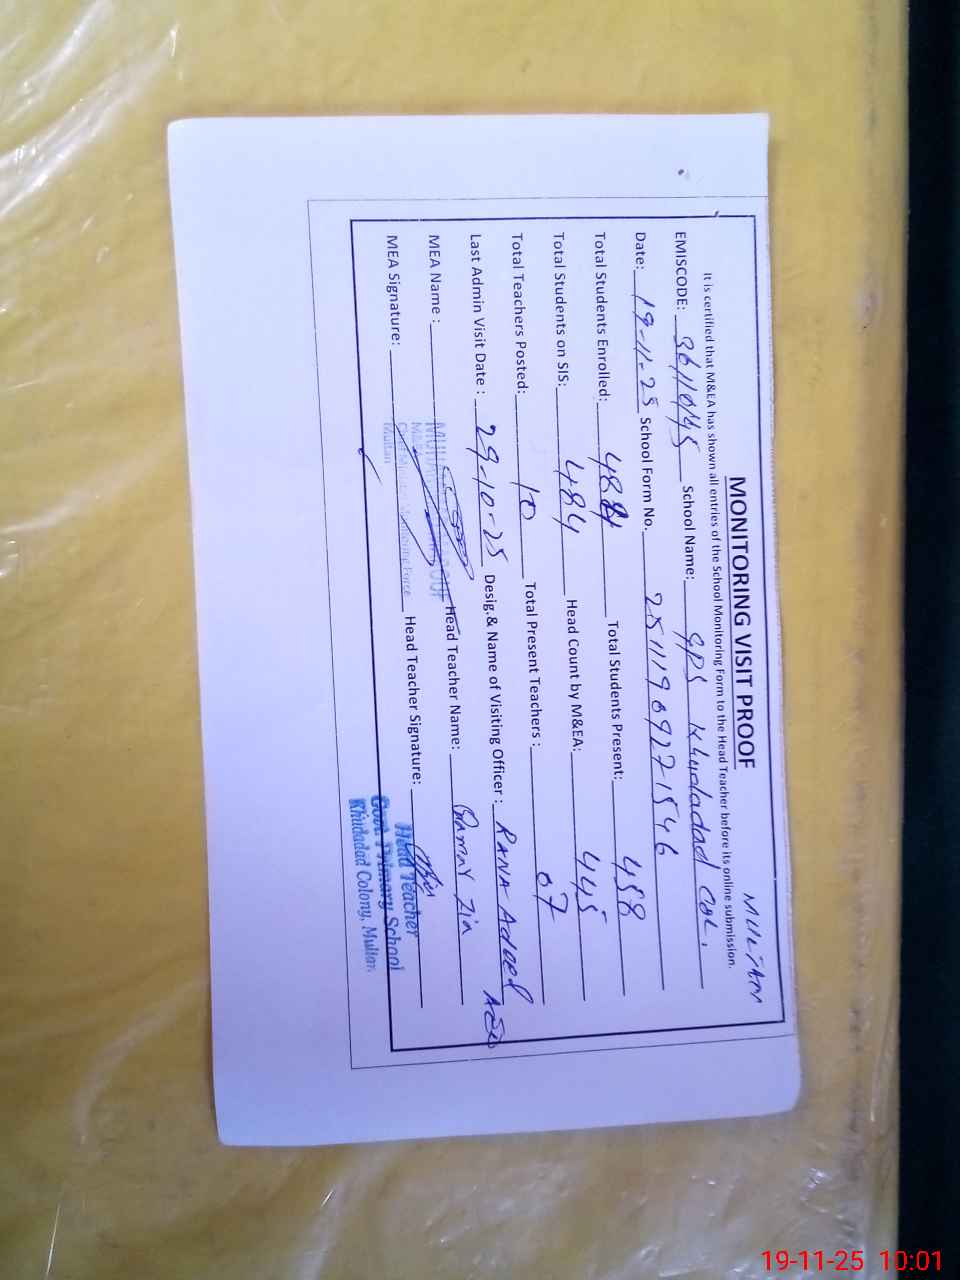 MONITORING VISIT PROOF
MULTAN
It is certified that M&EA has shown all entries of the School Monitoring Form to the Head Teacher before its online submission.
EMISCODE: 36110145 School Name: GPS Khudadad Col.
Date: 19-11-25 School Form No. 25111910927-1546
Total Students Enrolled: 484 Total Students Present: 458
Total Students on SIS: 484 Head Count by M&EA: 445
Total Teachers Posted: 10 Total Present Teachers : 07
Last Admin Visit Date : 29-10-25 Desig.& Name of Visiting Officer : RANA Adeel AEO
MEA Name : Head Teacher Name:
MEA Signature: Head Teacher Signature:
Monitoring Force
Multan
Head Teacher
Govt. Primary School
Khudadad Colony, Multan.
19-11-25 10:01